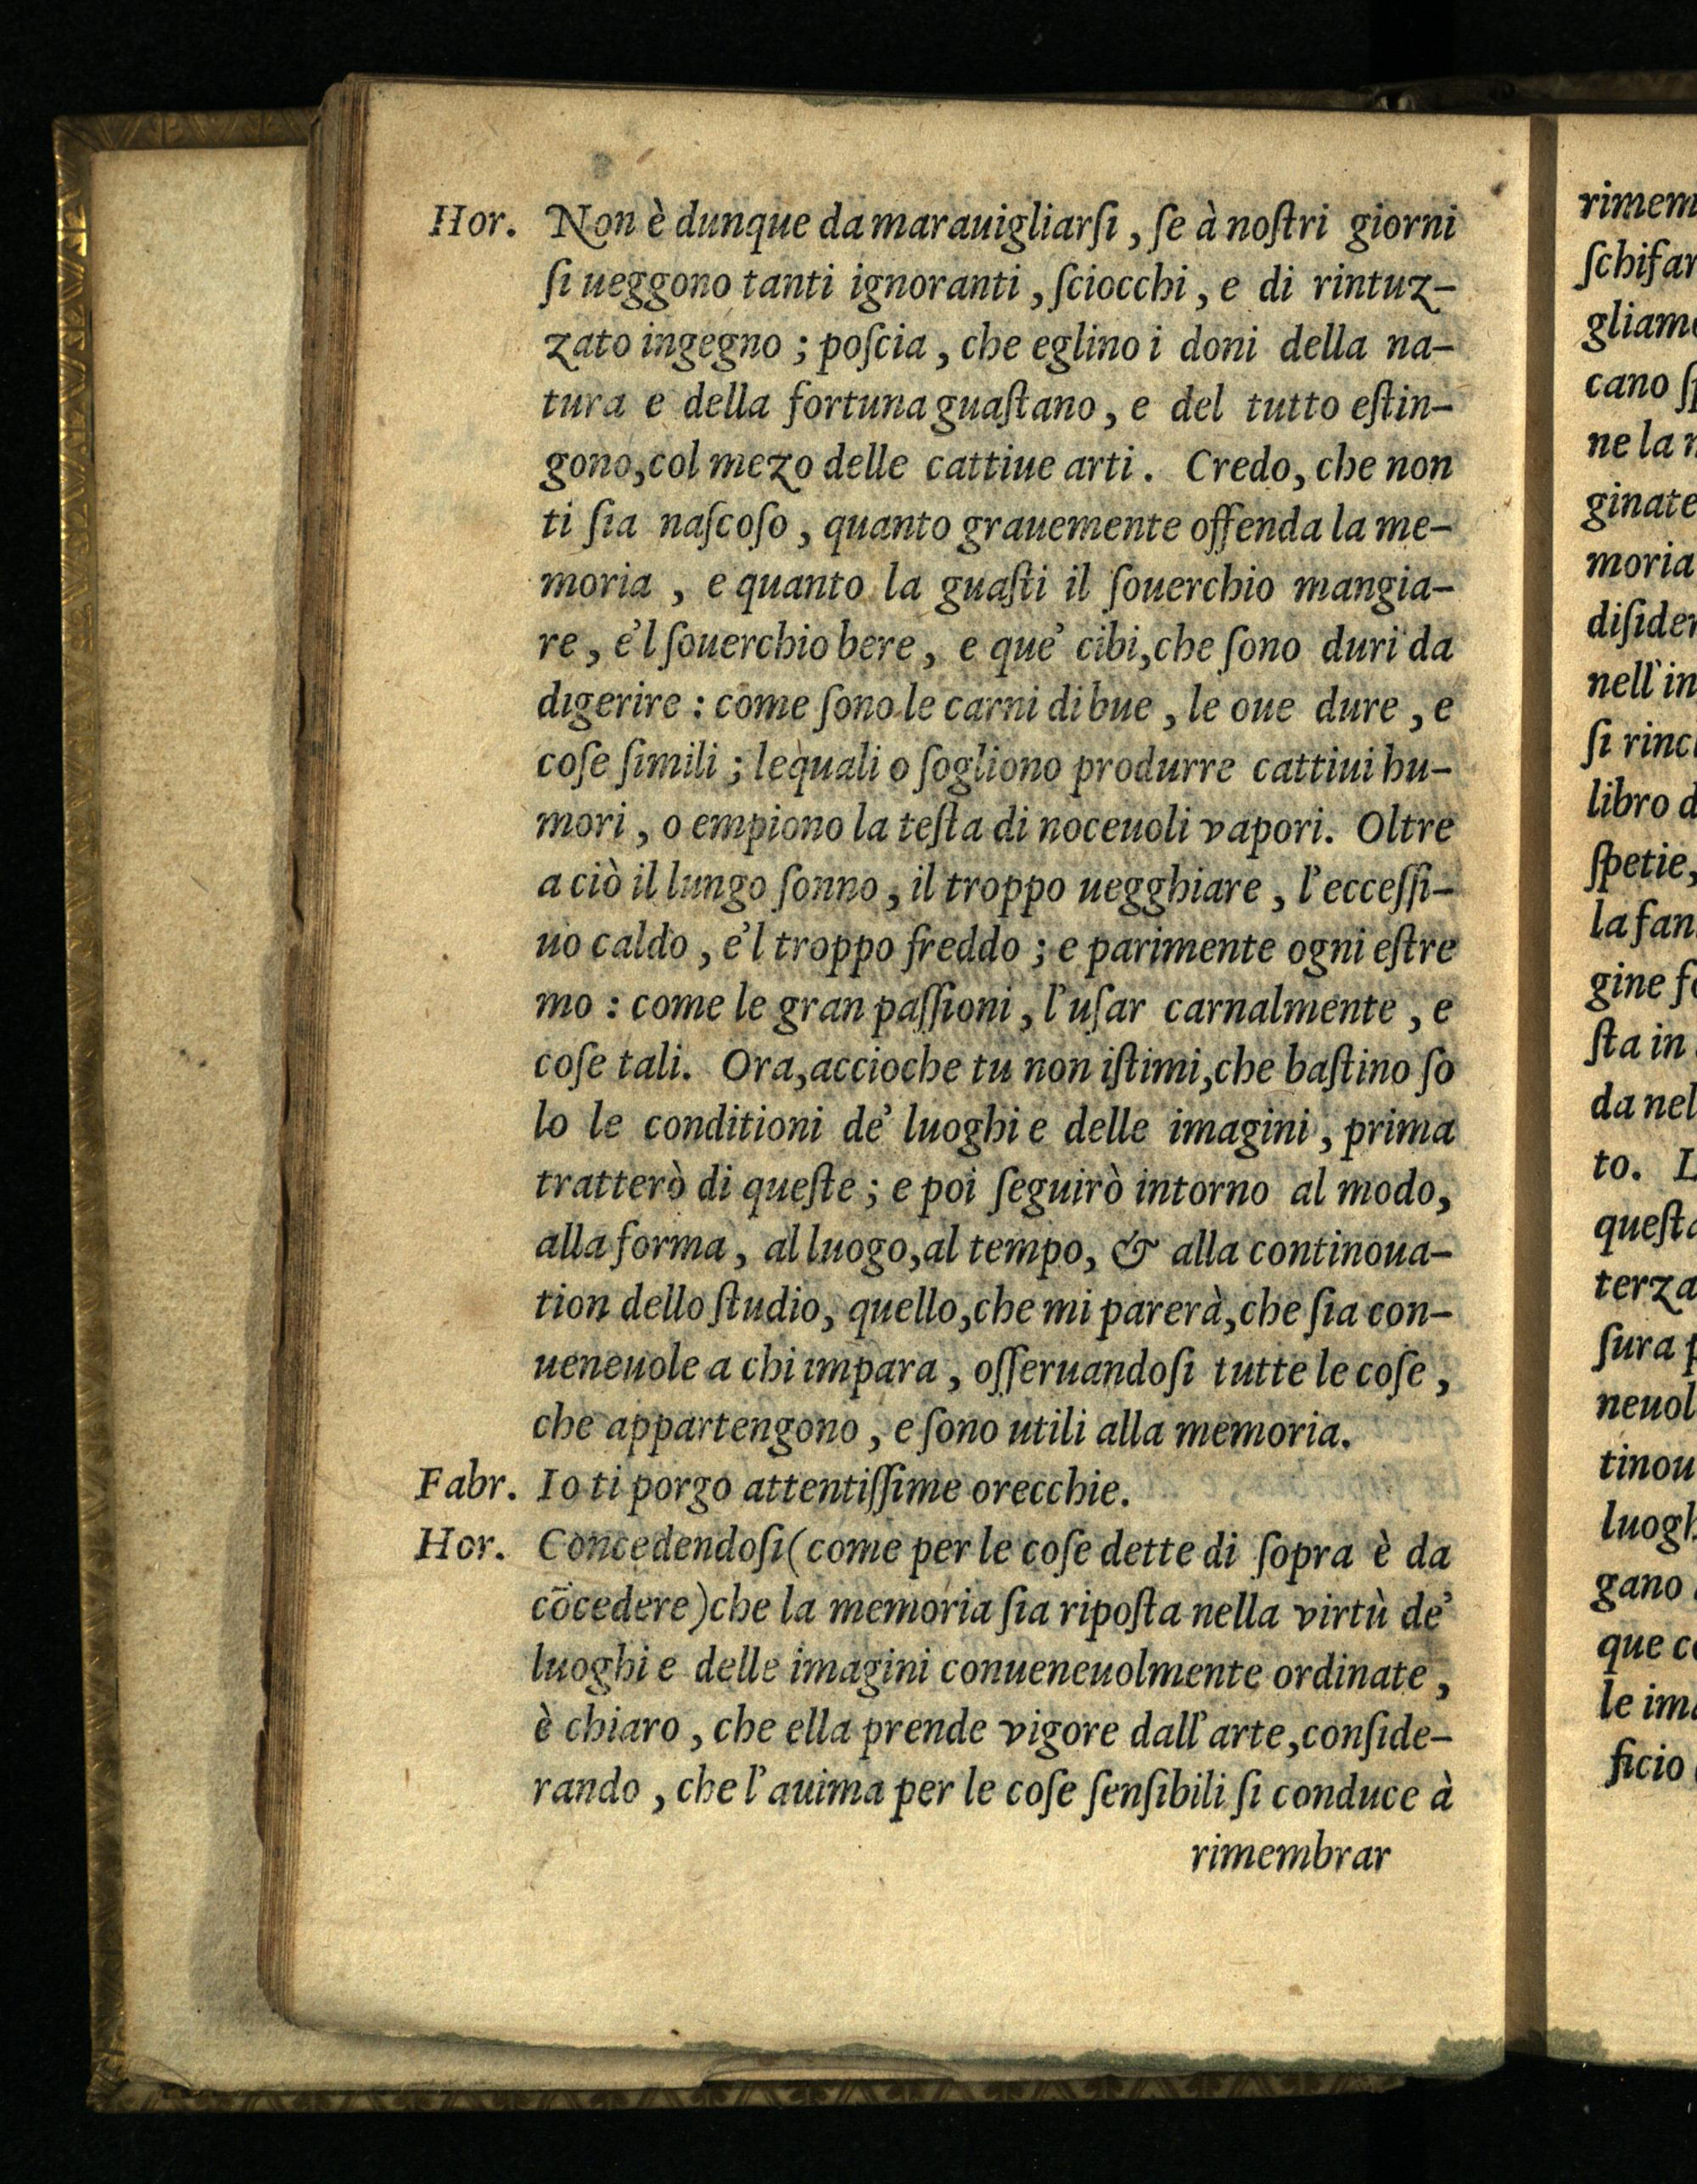 Hor. Non è dunque da marauigliarſi, ſe à noſtri giorni
ſi ueggono tanti ignoranti, ſciocchi, e di rintuz-
zato ingegno; poſcia, che eglino i doni della na-
tura e della fortuna guaſtano, e del tutto eſtin-
gono, col mezo delle cattiue arti. Credo, che non
ti ſia naſcoſo, quanto grauemente offenda la me-
moria, e quanto la guaſti il ſouerchio mangia-
re, e'l ſouerchio bere, e que' cibi, che ſono duri da
digerire: come ſono le carni di bue, le oue dure, e
coſe ſimili; lequali o ſogliono produrre cattiui hu-
mori, o empiono la teſta di noceuoli vapori. Oltre
a ciò il lungo ſonno, il troppo uegghiare, l'ecceſſi-
uo caldo, e'l troppo freddo; e parimente ogni eſtre
mo: come le gran paſſioni, l'uſar carnalmente, e
coſe tali. Ora, accioche tu non iſtimi, che baſtino ſo
lo le conditioni de' luoghi e delle imagini, prima
tratterò di queſte; e poi ſeguirò intorno al modo,
alla forma, al luogo, al tempo, & alla continoua-
tion dello ſtudio, quello, che mi parerà, che ſia con-
ueneuole a chi impara, oſſeruandoſi tutte le coſe,
che appartengono, e ſono utili alla memoria.
Fabr. Io ti porgo attentiſſime orecchie.
Hor. Concedendoſi (come per le coſe dette di ſopra è da
cōcedere) che la memoria ſia ripoſta nella virtù de'
luoghi e delle imagini conueneuolmente ordinate,
è chiaro, che ella prende vigore dall'arte, conſide-
rando, che l'auima per le coſe ſenſibili ſi conduce à
rimembrar
rimem
ſchifar
gliam
cano ſp
ne la
ginate
moria
diſider
nell'in
ſi rinc
libro d
ſpetie,
la fan
gine fo
ſta in
da nel
to. L
queſta
terza
ſura p
neuol
tinou
luogh
gano
que c
le im
ficio